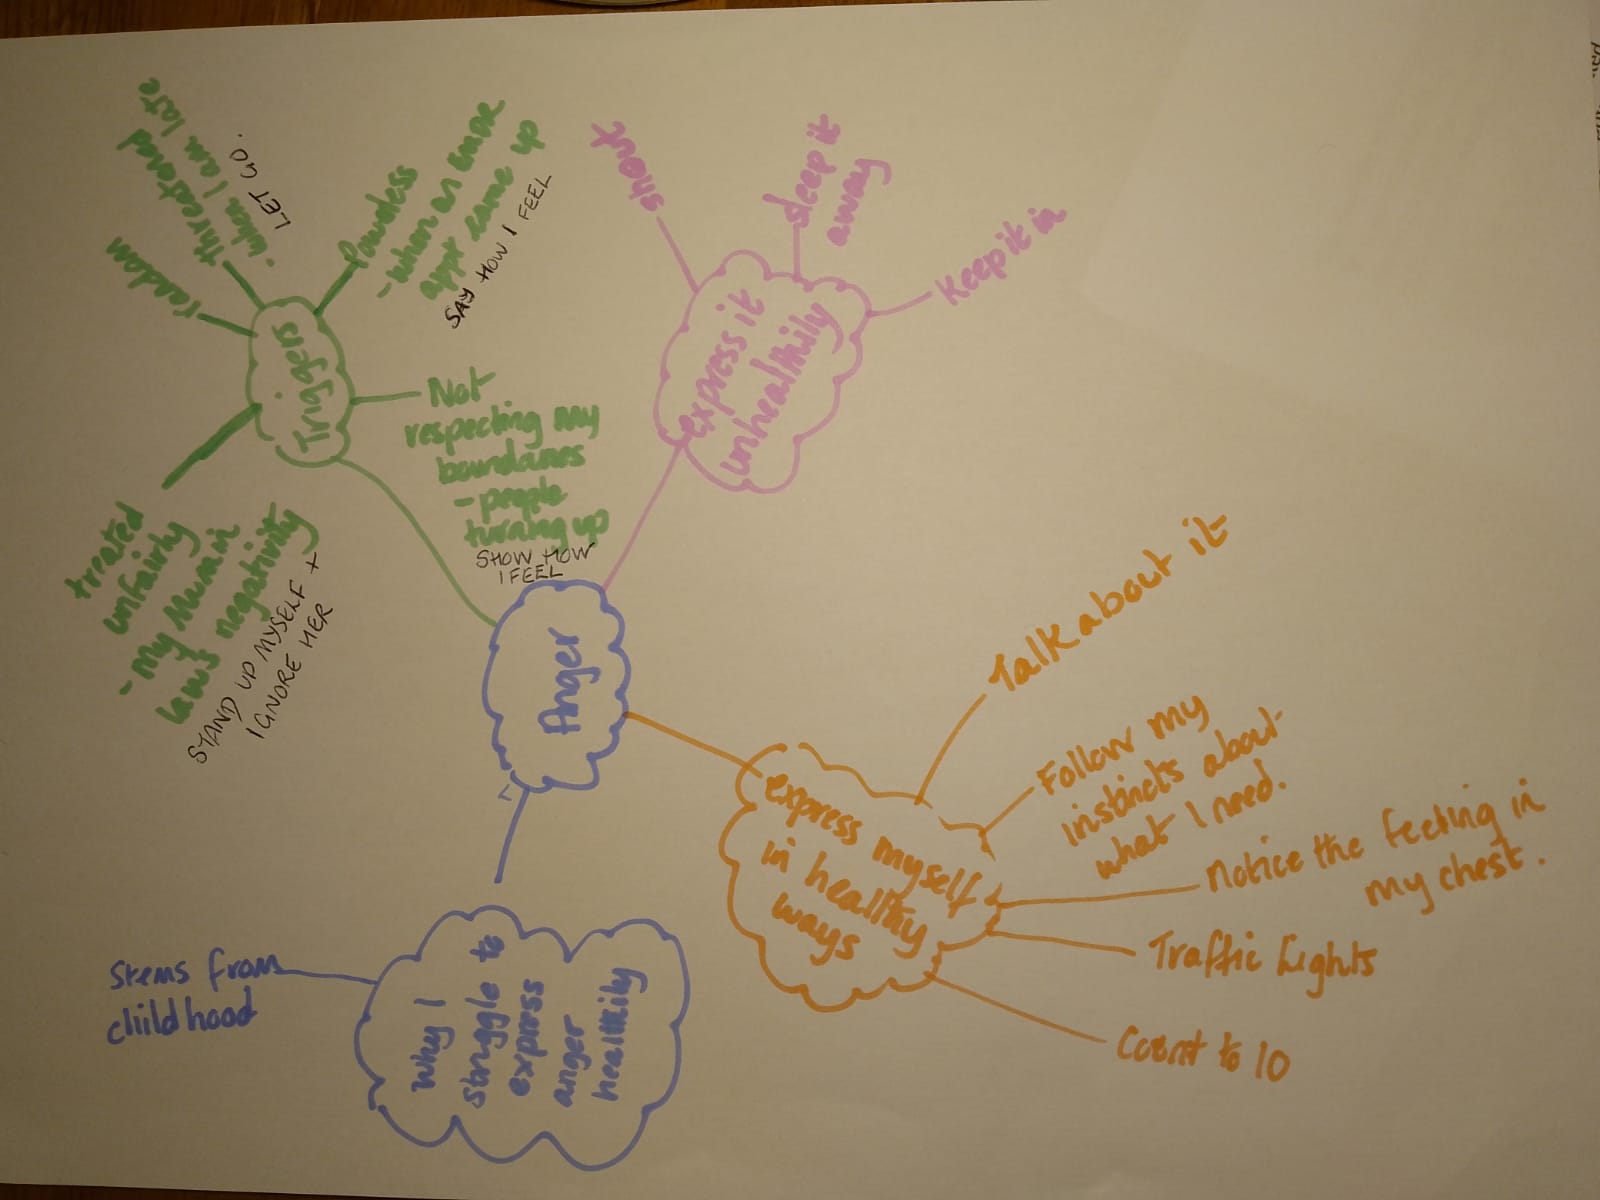 Anger
Triggers
random
threatened
- when I am late
LET GO.
Powerless
- when an
appt came up
SAY HOW I FEEL
Not
respecting my
boundaries
- people
turning up
SHOW HOW
I FEEL
treated
unfairly
- my Mum in
law's negativity
STAND UP MYSELF +
IGNORE HER
express it
unhealthily
shout
sleep it
away
Keep it in
express myself
in healthy
ways
Talk about it
Follow my
instincts about
what I need.
Notice the feeling in
my chest.
Traffic Lights
Count to 10
Why I
struggle to
express
anger
healthily
Stems from
childhood